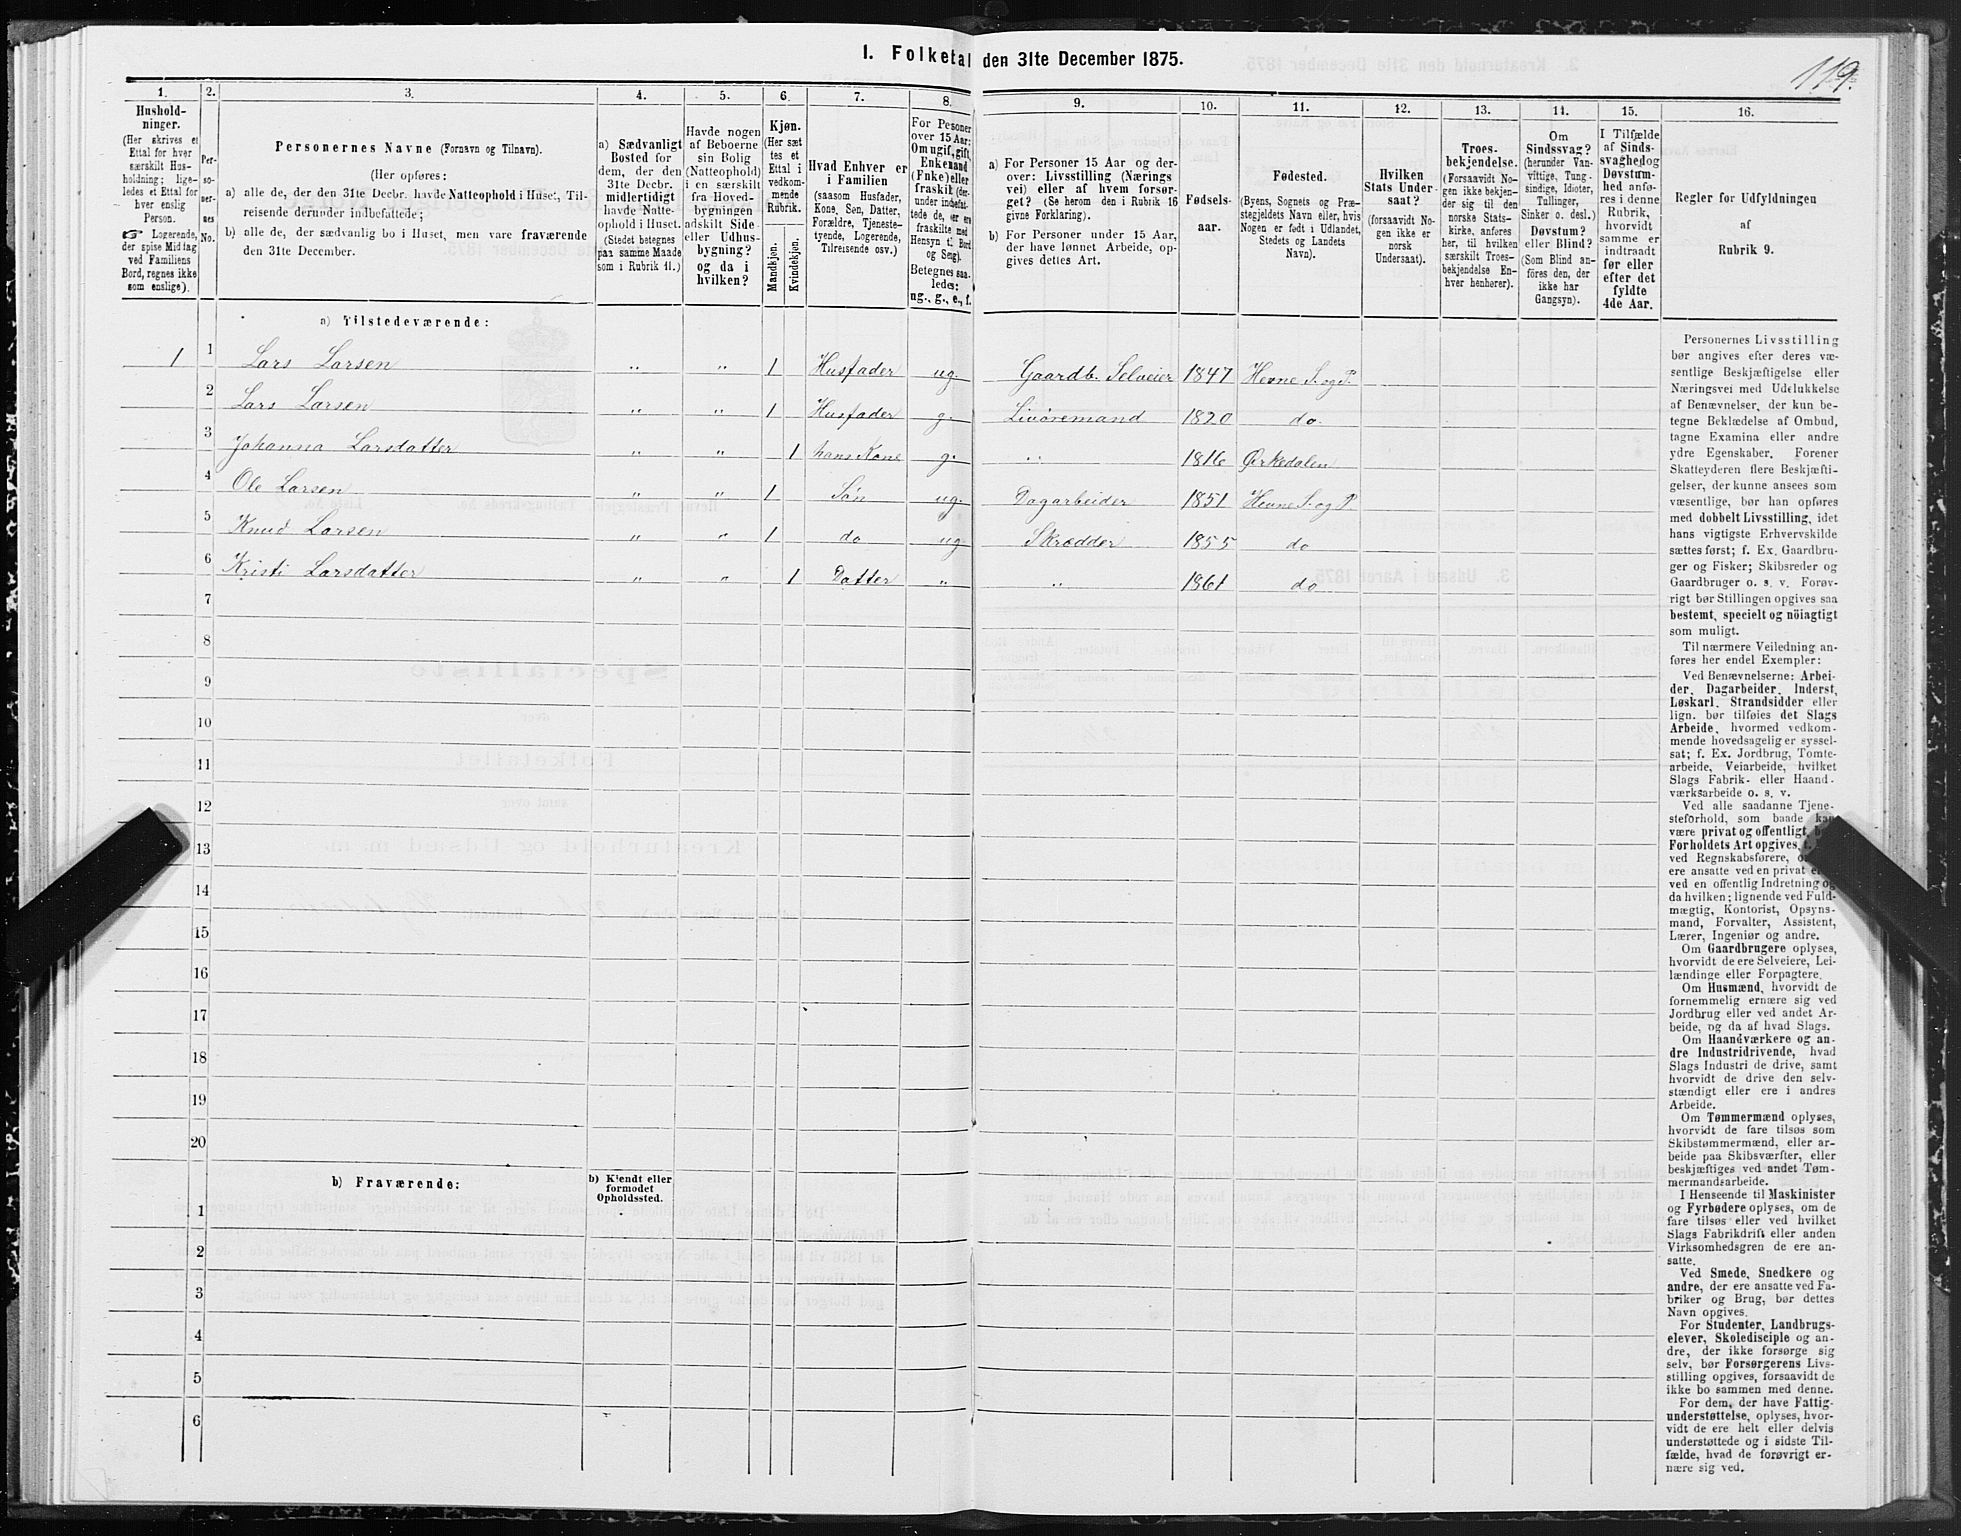 I. Folketal den 31te December 1875.
119.
1.
Hushold-
ninger.
(Her skrives et
Ettal for hver
særskilt Hus-
holdning; lige-
ledes et Ettal for
hver enslig
Person.
☞ Logerende,
der spise Middag
ved Familiens
Bord, regnes ikke
som enslige).
2.
Per-
so-
ner-
nes
No.
3.
Personernes Navne (Fornavn og Tilnavn).
(Her opføres:
a) alle de, der den 31te Decbr. havde Natteophold i Huset, Til-
reisende derunder indbefattede;
b) alle de, der sædvanlig bo i Huset, men vare fraværende
den 31te December.
4.
a) Sædvanligt
Bosted for
dem, der den
31te Decbr.
midlertidigt
havde Natte-
ophold i Huset.
(Stedet betegnes
paa samme Maade
som i Rubrik 11.)
5.
Havde nogen
af Beboerne
sin Bolig
(Natteophold)
i en særskilt
fra Hoved-
bygningen
adskilt Side-
eller Udhus-
bygning?
og da i
hvilken?
6.
Kjøn.
(Her sæt
tes et
Ettal i
vedkom-
mende
Rubrik.
Mandkjøn.
Kvindekjøn.
7.
Hvad Enhver er
i Familien
(saasom Husfader,
Kone, Søn, Datter,
Forældre, Tjeneste-
tyende, Logerende,
Tilreisende osv.)
8.
For Pesoner
over 15 Aar:
Om ugif, gift,
Enkemand
(Enke) eller
fraskilt (der-
under indbefat-
tede de, der ere
fraskilte med
Hensyn t. Bord
og Seng).
Betegnes saa-
ledes:
ug., g., e., f.
9.
a) For Personer 15 Aar og der-
over: Livsstilling (Nærings
vei) eller af hvem forsør-
get? (Se herom den i Rubrik 16
givne Forklaring).
b) For Personer under 15 Aar,
der have lønnet Arbeide, op-
gives dettes Art.
10.
Fødsels-
aar.
11.
Fødested.
(Byens, Sognets og Præ-
stegjeldets Navn eller, hvis
Nogen er født i Udlandet,
Stedets og Landets
Navn).
12.
Hvilken
Stats Under-
saat?
(forsaavidt No-
gen ikke er
norsk
Undersaat).
13.
Troes-
bekjendelse.
(Forsaavidt No-
gen ikke bekjen-
der sig til den
norske Stats-
kirke, anføres
her, til hvilken
særskilt Troes-
bekjendelse En-
hver henhører).
14.
Om
Sindssvag?
(herunder Van-
vittige, Tung-
sindige, Idioter,
Tullinger,
Sinker o. desl.)
Døvstum?
eller Blind?
(Som Blind an-
føres den, der
ikke har
Gangsyn).
15.
I Tilfælde
af Sinds-
svaghed og
Døvstum-
hed anfø-
res i denne
Rubrik,
hvorvidt
samme er
indtraadt
før eller
efter det
fyldte
4de Aar.
16.
Regler for Udfyldningen
af
Rubrik 9.
a) Tilstedeværende:
1 1 Lars Larsen " " 1 Husfader ug. Gaardb. Selveier 1847 Hevne S. og P.
2 Lars Larsen " " 1 Husfader g. Livøremand 1820 do.
3 Johanna Larsdatter " " 1 hans Kone g. " 1816 Ørkedalen
4 Ole Larsen " " 1 Søn ug. Dagarbeider 1851 Hevne S. og P.
5 Knud Larsen " " 1 do ug Skrædder 1855 do
6 Kristi Larsdatter " " 1 Datter " " 1861 do
7
8
9
10
11
12
13
14
15
16
17
18
19
20
b) Fraværende:
b) Kjendt eller
formodet
Opholdssted.
1
2
3
4
5
6
Personernes Livsstilling
bør angives efter deres væ-
sentlige Beskjæftigelse eller
Næringsvei med Udelukkelse
af Benævnelser, der kun be-
tegne Beklædelse af Ombud,
tagne Examina eller andre
ydre Egenskaber. Forener
Skatteyderen flere Beskjæfti-
gelser, der kunne ansees som
væsentlige, bør han opføres
med dobbelt Livsstilling, idet
hans vigtigste Erhvervskilde
sættes først; f. Ex. Gaardbru-
ger og Fisker; Skibsreder og
Gaardbruger o. s. v. Forøv-
rigt bør Stillingen opgives saa
bestemt, specielt og nöiagtigt
som muligt.
Til nærmere Veiledning an-
føres her endel Exempler:
Ved Benævnelserne: Arbei-
der, Dagarbeider, Inderst,
Løskarl, Strandsidder eller
lign. bør tilføies det Slags
Arbeide, hvormed vedkom-
mende hovedsagelig er syssel-
sat; f. Ex. Jordbrug, Tomte-
arbeide, Veiarbeide, hvilket
Slags Fabrik- eller Haand-
værksarbeide o. s. v.
Ved alle saadanne Tjene-
steforhold, som baade kan
være privat og offentligt,
Forholdets Art opgives,
ved Regnskabsførere,
ere ansatte ved en privat
ved en offentlig Indretning og
da hvilken; lignende ved Fuld-
mægtig, Kontorist, Opsyns-
mand, Forvalter, Assistent,
Lærer, Ingeniør og andre.
Om Gaardbrugere oplyses,
hvorvidt de ere Selveiere, Lei-
lændinge eller Forpagtere.
Om Husmænd, hvorvidt de
fornemmelig ernære sig ved
Jordbrug eller ved andet Ar-
beide, og da af hvad Slags.
Om Haandværkere og an-
dre Industridrivende, hvad
Slags Industri de drive, samt
hvorvidt de drive den selv-
stændigt eller ere i andres
Arbeide.
Om Tømmermænd oplyses,
hvorvidt de fare tilsøs som
Skibstømmermænd, eller ar-
beide paa Skibsværfter, eller
beskjæftiges ved andet Tøm-
mermandsarbeide.
I Henseende til Maskinister
og Fyrbødere oplyses, om de
fare tilsøs eller ved hvilket
Slags Fabrikdrift eller anden
Virksomhedsgren de ere an-
satte.
Ved Smede, Snedkere og
andre, der ere ansatte ved Fa-
briker og Brug, bør dettes
Navn opgives.
For Studenter, Landbrugs-
elever, Skoledisciple og an-
dre, der ikke forsørge sig
selv, bør Forsørgerens Livs-
stilling opgives, forsaavidt de
ikke bo sammen med denne.
For dem, der have Fattig-
understøttelse, oplyses, hvor-
vidt de ere helt eller delvis
understøttede og i sidste Til-
fælde, hvad de forøvrigt er-
nære sig ved.